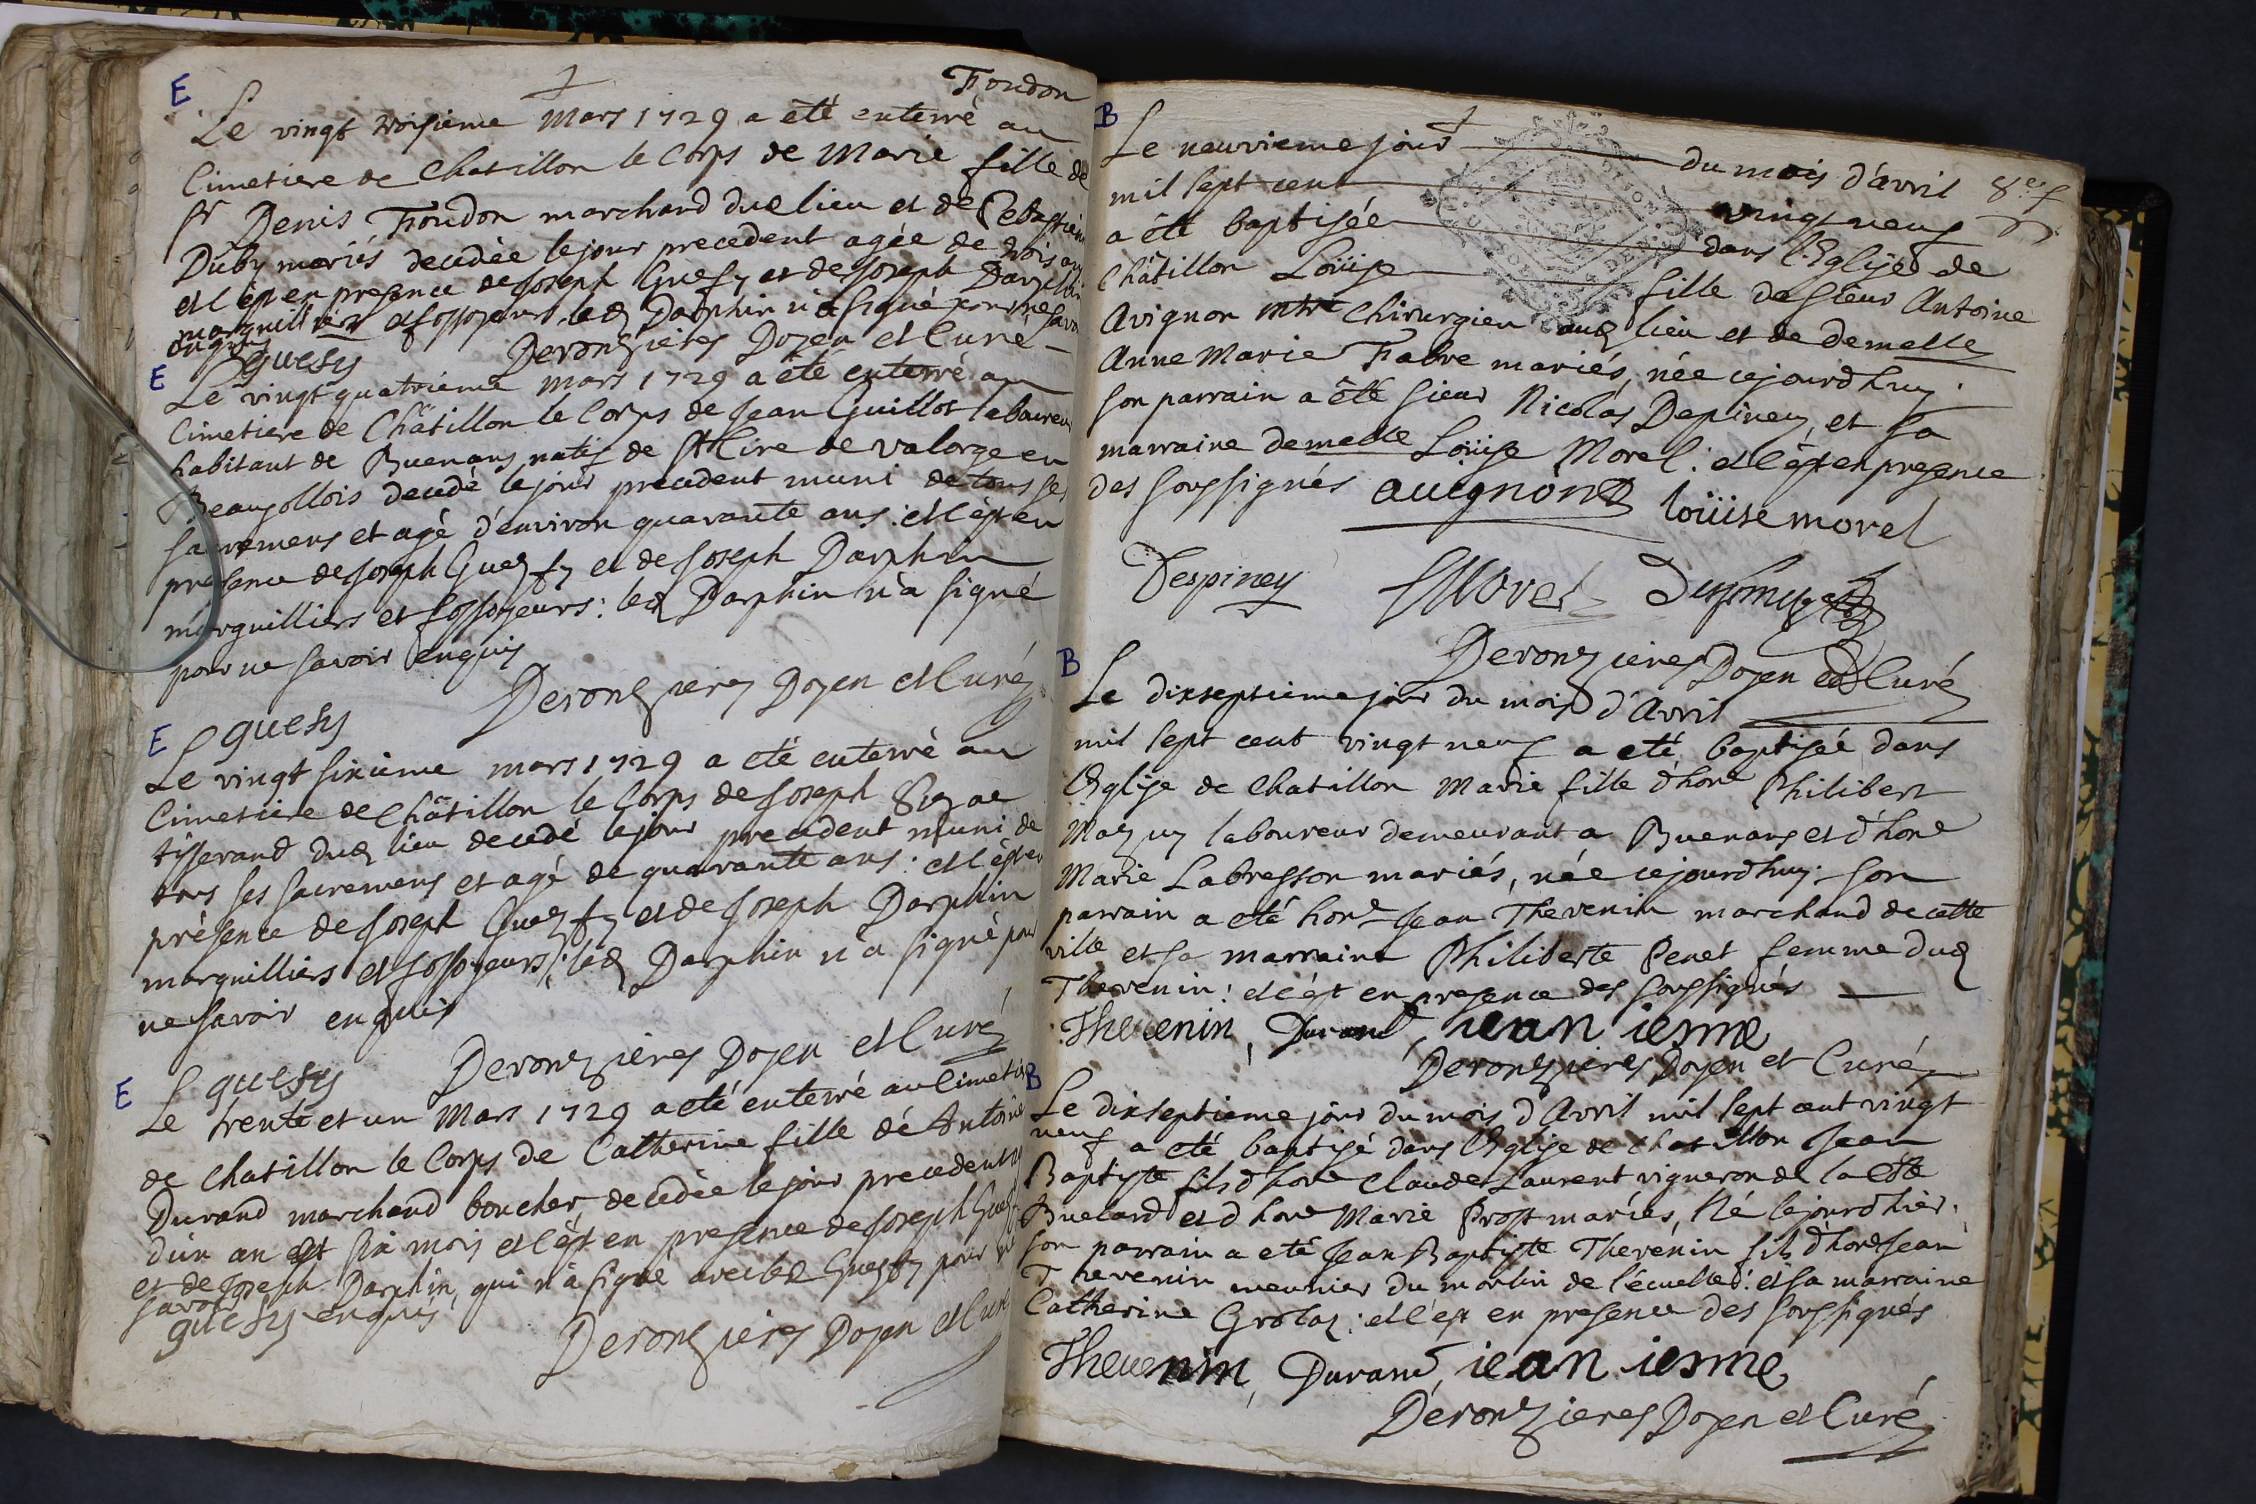 E
Foudon
Le vingt troisieme Mars 1729 a été enterré au
Cimetiere de Chatillon le Corps de Marie fille de
Sr Denis Foudon marchand dud lieu et de Sebastiene
Duby mariés decedée le jour precedent agée de trois ans
et c'est en presence de Joseph Guefy et de Joseph Darphin
marguilliers et fossoyeurs, led Darphin n'a signé pour ne savoir
enquis
Jguefy Deronzieres Doyen et Curé
E
Le vingt quatrieme mars 1729 a été enterré au
Cimetiere de Châtillon le Corps de Jean Guillot laboureur
habitant de Buenans natif de St Cire de Valorge en
Beaujollois decedé le jour precedent muni de tous ses
sacremens et agé d'environ quarante ans: et c'est en
presence de Joseph Guefy et de Joseph Darphin
marguilliers et fossoyeurs: led Darphin n'a signé
pour ne savoir enquis
Jguefy Deronzieres Doyen et Curé
E
Le vingt sixieme mars 1729 a eté enterré au
Cimetiere de Châtillon le Corps de Joseph
tisserand dud lieu decedé le jour precedent muni de
tous ses sacremens et agé de quarante ans: et c'est en
présence de Joseph Guefy et de Joseph Darphin
marguilliers et fossoyeurs: led Darphin n'a signé pour
ne savoir enquis
Jguefy Deronzieres Doyen et Curé
E
Le trente et un Mars 1729 a eté enterré au Cimetiere
de Chatillon le Corps de Catherine fille de Antoine
Durand marchand boucher, decedée le jour precedent
d'un an et six mois et c'est en presence de Joseph Guefy
et de Joseph Darphin, qui n'a signé avec led Guefy pour ne
savoir enquis
guefy Deronzieres Doyen et Curé
B
Le neuvieme jour du mois d'avril
mil sept cent vingt neuf
a été baptisée dans l'Eglise de
Châtillon Loüise fille de Sieur Antoine
Avignon mtre Chirurgien aud lieu et de demelle
Anne Marie Fabre mariés, née cejourd'huy.
son parrain a été sieur Nicolas Depiney, et sa
marraine demelle Loüise Morel: et c'est en presence
des soussignés auignon loüise morel
Despiney Morel
Deronzieres Doyen et Curé
B
Le dixseptieme jour du mois d'Avril
mil sept cent vingt neuf a eté baptisée dans
l'Eglise de Chatillon Marie fille d'hone Philibert
Mazuy laboureur demeurant a Buenans et d'hone
Marie Labresson mariés, née cejourd'huy: son
parrain a eté hone Jean Thevenin marchand de cette
ville et sa marraine Philiberte Penet femme dud
Thevenin: et c'est en presence des soussignés
Theuenin, Durand, iean iesme
Deronzieres Doyen et Curé
B
Le dixseptieme jour du mois d'Avril mil sept cent vingt
neuf a eté baptisé dans l'Eglise de Chatillon Jean
Baptiste fils d'hone Claude Laurent vigneron de la côte
Buelard et d'hone Marie Prost mariés, Né le jour d'hier.
son parrain a eté Jean Baptiste Thevenin fils d'hone Jean
Thevenin meunier du moulin de l'écuelle: et sa marraine
Catherine Grolaz: et c'est en presence des soussignés
Theuenin, Durand, iean iesme
Deronzieres Doyen et Curé